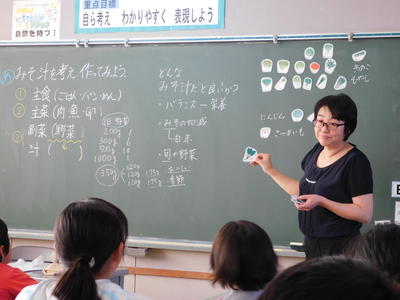 重点目標
自ら考え わかりやすく 表現しよう
自信を持つ！
め みそ汁を考え 作ってみよう
① 主食(ごはん・パン・めん)
② 主菜(肉・魚・卵)
③ 副菜(野菜)
汁( )
1日 野菜
200g
300g
500g
1000g
350g
120g
120g
120g
どんな
みそ汁だと良いか？
・バランス－栄養
・旬の野菜
きのこ
もやし
にんじん
さつまいも